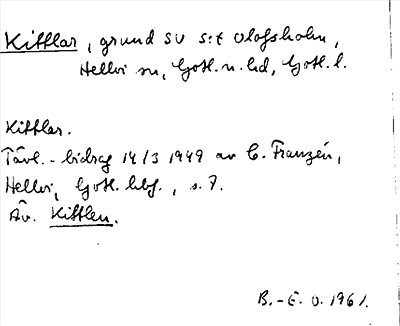 Kittlar, grund SV S:t Olofsholm,
Hellvi sn, Gotl. n. hd, Gotl. l.
Kittlar.
Tävl.-bidrag 14/3 1949 av C. Franzén,
Hellvi, Gotl. hbf., s. 7.
Äv. Kittlen.
B.-E. O. 1961.